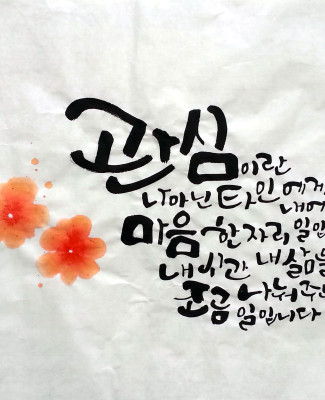 관심이란
나 아닌 타인에게
내어
마음 한자리 일입
내 시간 내 삶을
조금 나눠주는
일입니다